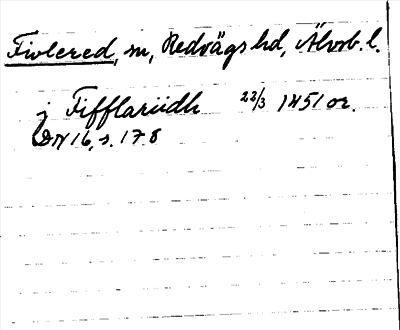 Fivlered, sn, Redvägs hd, Älvsb. l.
j Fifflariidh 22/3 1451 or.
DN 16, s. 178